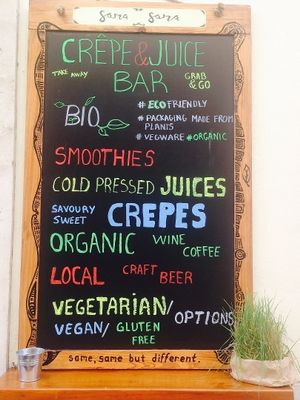 sara sara
CRÊPE & JUICE
BAR
TAKE AWAY
GRAB & GO
BIO
# ECO FRIENDLY
# PACKAGING MADE FROM PLANTS
# VEGWARE # ORGANIC
SMOOTHIES
COLD PRESSED JUICES
SAVOURY SWEET CREPES
ORGANIC WINE COFFEE
LOCAL CRAFT BEER
VEGETARIAN/
VEGAN/ GLUTEN FREE OPTIONS
same, same but different.